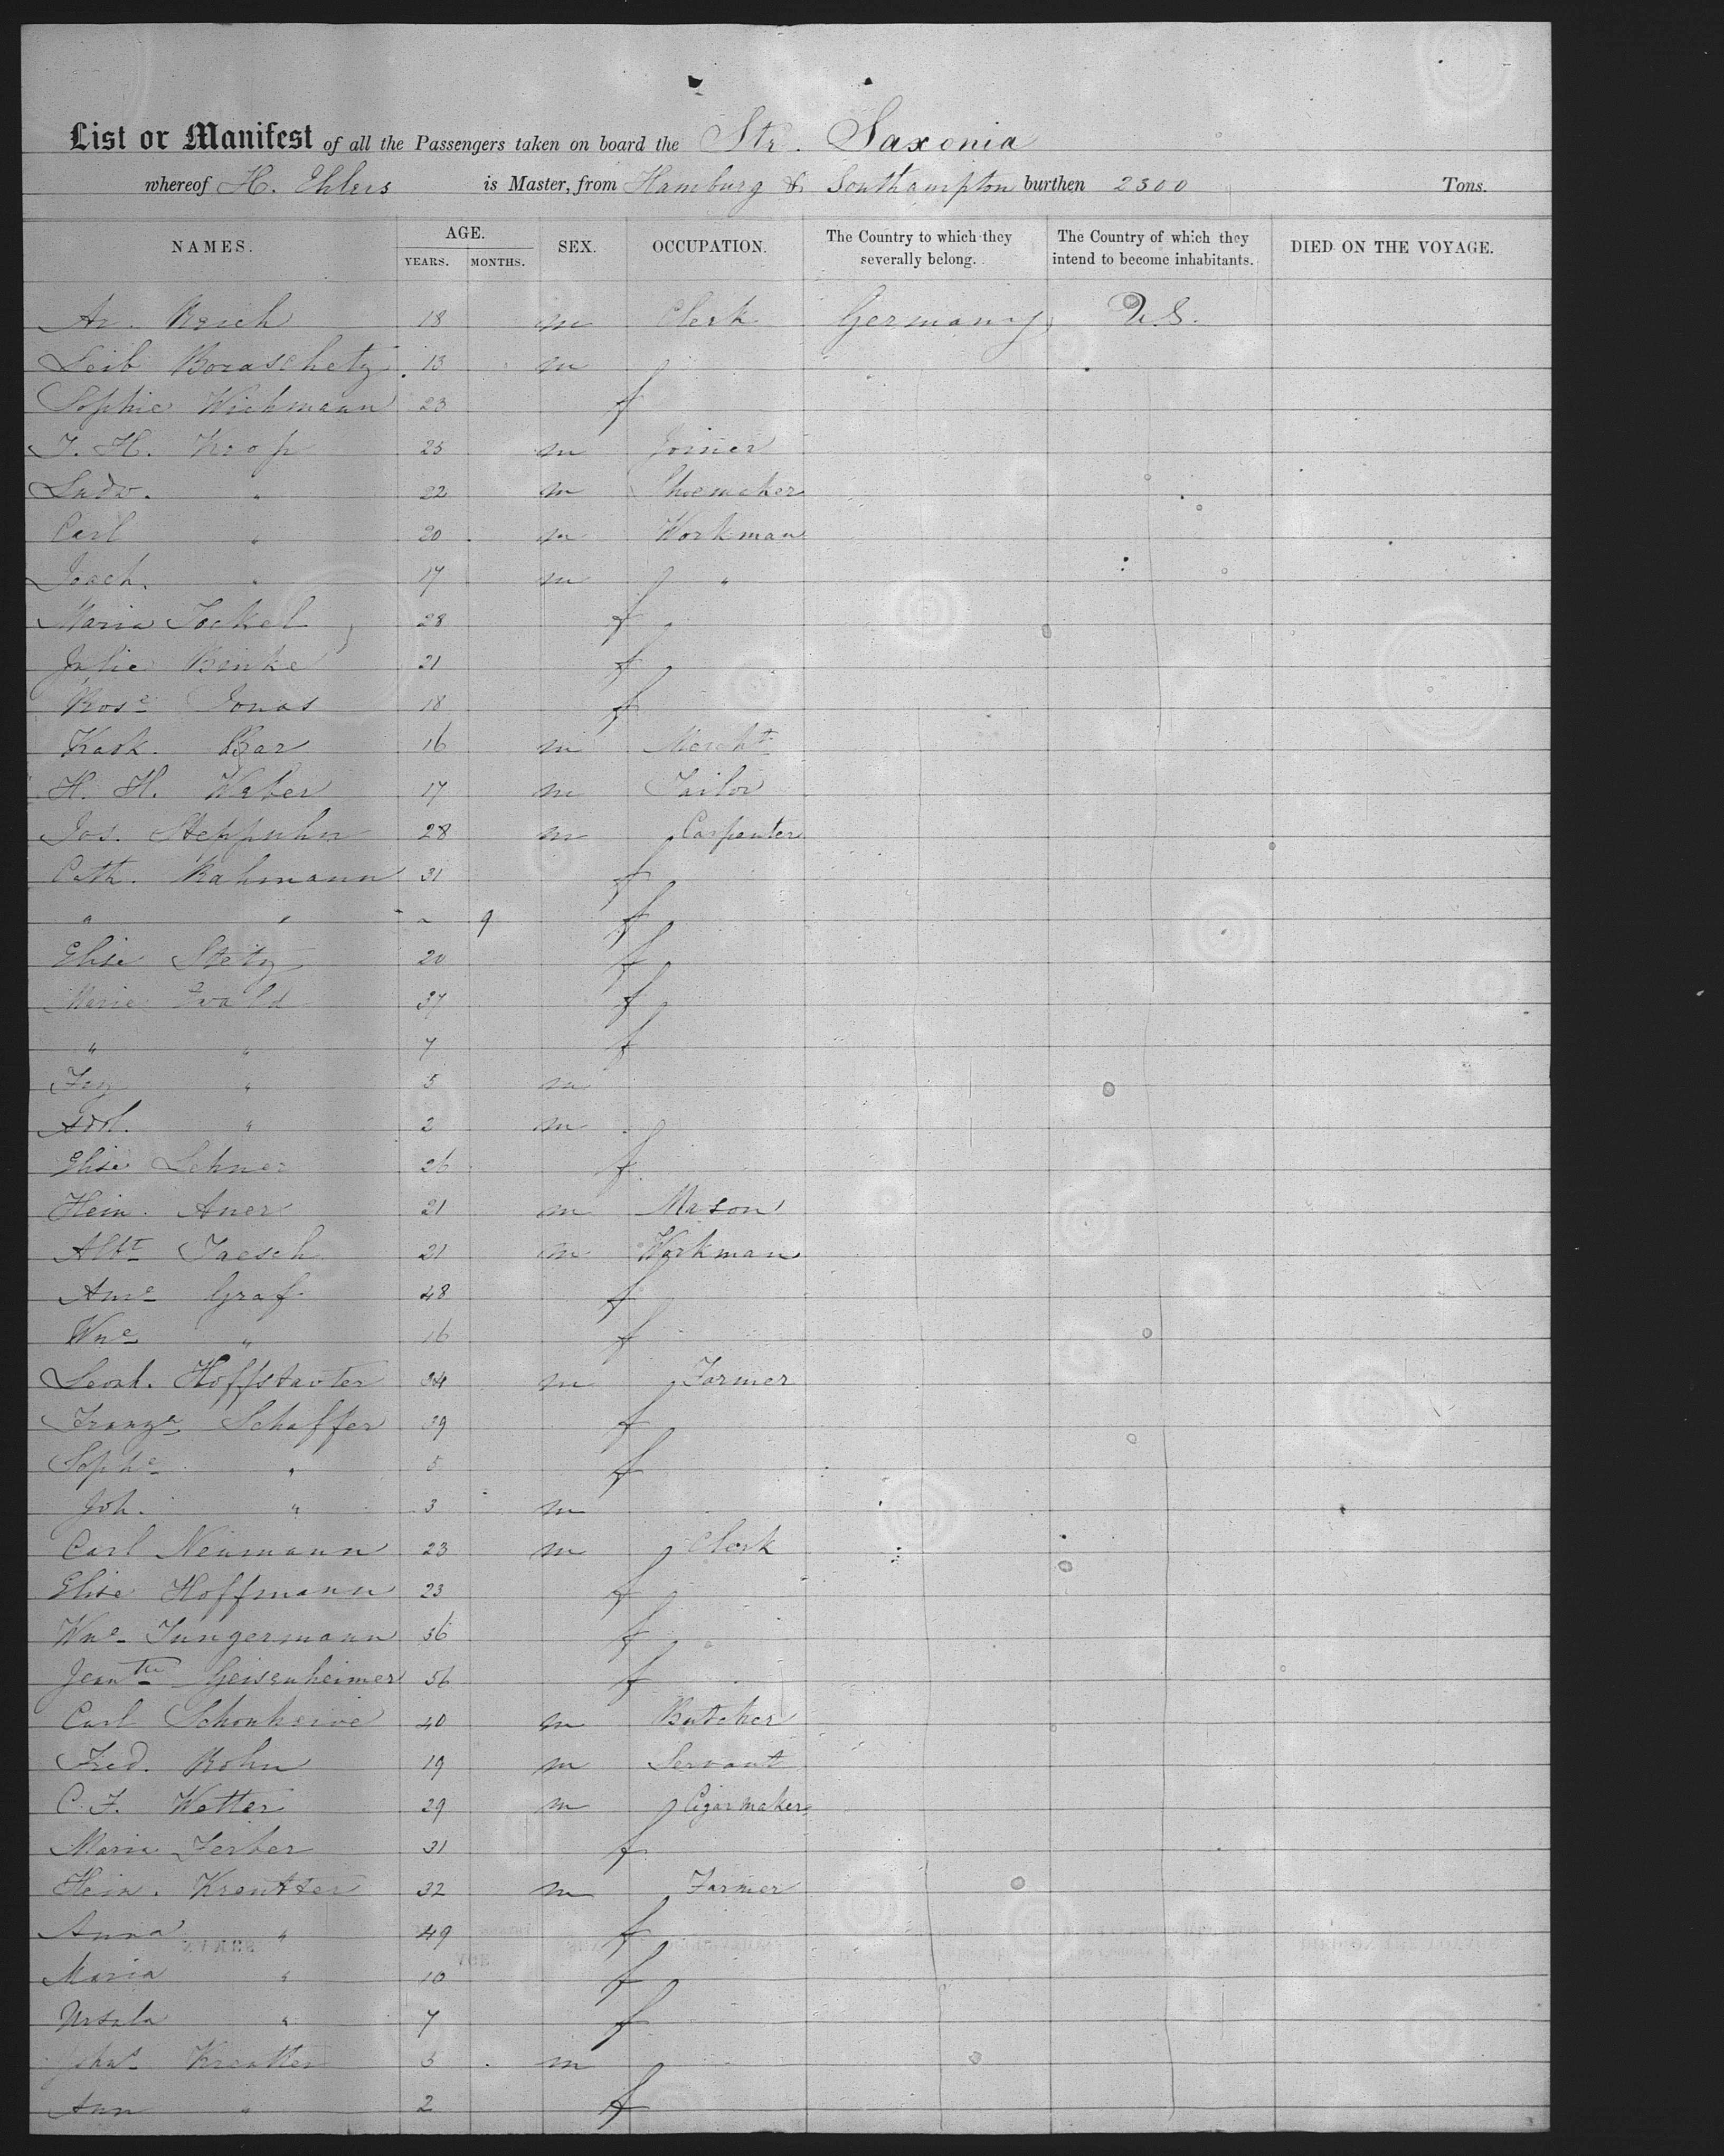 List or Manifest of all the Passengers taken on board the Str. Saxonia
whereof H. Ehlers is Master, from Hamburg & Southampton burthen 2300 Tons.
NAMES. AGE. YEARS. MONTHS. SEX. OCCUPATION. The Country to which they severally belong. The Country of which they intend to become inhabitants. DIED ON THE VOYAGE.
Ar. Reich 18 m Clerk Germany U.S.
Leib Boraschetz 13 m
Sophie Wichmann 23 f
J. H. Krop 25 m Joiner
Ludw. " 22 m Shoemaker
Carl " 20 m Workman
Joach. " 17 m "
Maria Jockel 28 f
Julie Benke 21 f
Rose Jonas 18 f
Kask. Bar 16 m Mercht
H. H. Weber 17 m Tailor
Jos. Steppuhn 28 m Carpenter
Cath. Rahmann 31 f
" " - 9 f
Elise Stetz 20 f
Marie Ewald 37 f
" " 7 f
" 5 m
Adol. " 2 m
Elise Lehner 26 f
Hein. Auer 21 m Mason
Albt Jaesch 21 m Workman
Ame Graf 48 f
Wne " 16 f
Leonh. Hoffstadter 34 m Farmer
Franza Schaffer 39 f
Sophe " 5 f
Joh. " 3 m
Carl Neumann 23 m Clerk
Elise Hoffmann 23 f
Wne Jungermann 36 f
Jeantte Geisenheimer 56 f
Carl 40 m Butcher
Fred. Rohn 19 m Servant
C. F. Wetter 29 m Cigarmaker
Marie Ferber 31 f
Hein. Kreutter 32 m Farmer
Anna " 49 f
Maria " 10 f
Ursula " 7 f
Kreutter 5 m
Ann " 2 f